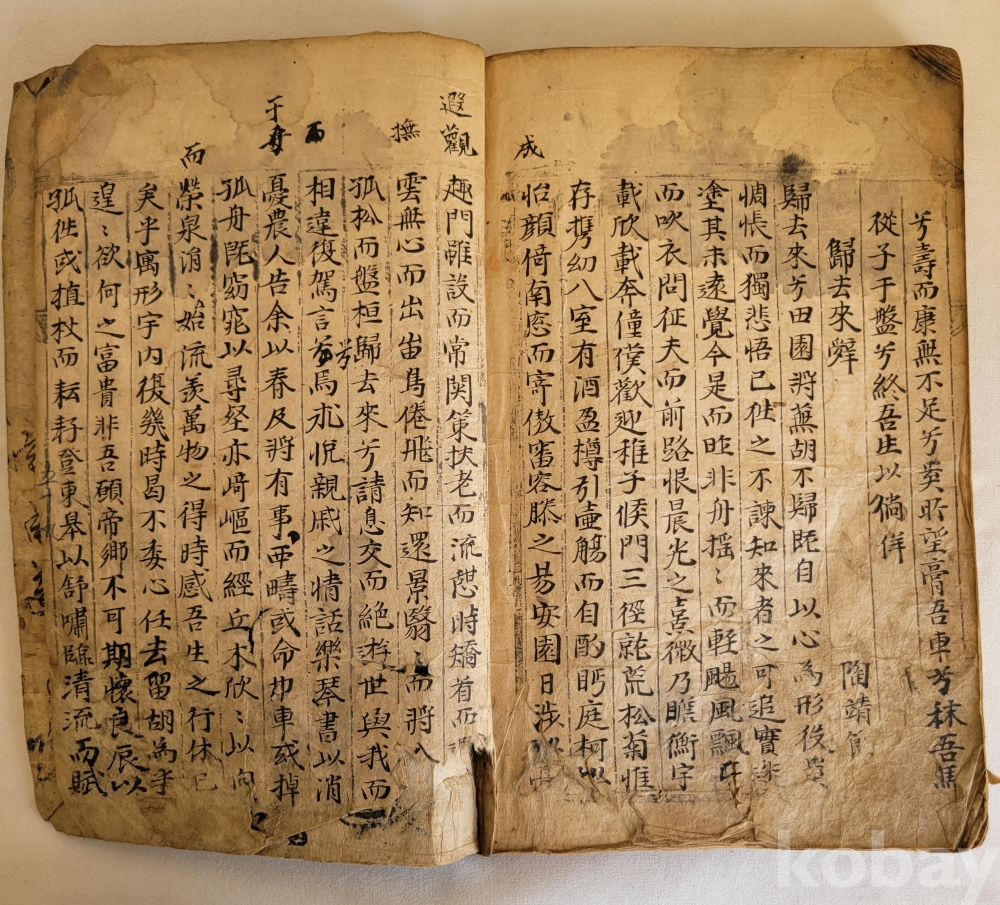 兮壽而康無不足兮奚所望膏吾車兮秣吾馬
從子于盤兮終吾生以徜徉
歸去來辭 陶靖節
歸去來兮田園將蕪胡不歸旣自以心爲形役奚
惆悵而獨悲悟已往之不諫知來者之可追實迷
塗其未遠覺今是而昨非舟揺〻而軽颺風飄
而吹衣問征夫而前路恨晨光之熹微乃瞻衡宇
載欣載奔僮僕歡迎稚子候門三徑就荒松菊惟
存携幼入室有酒盈樽引壷觴而自酌眄庭柯以
成
怡顔倚南窓而寄傲審容膝之易安園日涉
遐觀
趣門雖設而常関策扶老而流憩時矯首而
雲無心而出岫鳥倦飛而知還景翳〻而將入
撫
孤松而盤桓歸去來兮請息交而絶游世與我而
相違復駕言兮焉求悅親戚之情話樂琴書以消
而
憂農人告余以春及將有事西疇或命巾車或掉
于舟
孤舟旣窈窕以尋壑亦崎嶇而經丘木欣〻以向
而
榮泉涓〻始流羨萬物之得時感吾生之行休已
矣乎寓形宇內復幾時曷不委心任去留胡爲乎
遑〻欲何之富貴非吾願帝鄉不可期懷良辰以
孤往或植杖而耘耔登東皐以舒嘯臨清流而賦
kobay